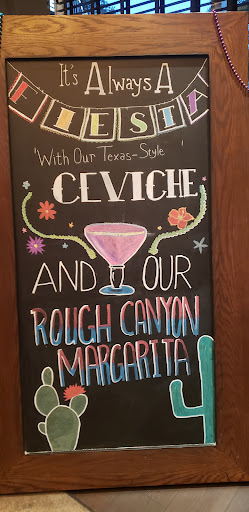 It's Always A
FIESTA
'With Our Texas-Style '
CEVICHE
AND OUR
ROUGH CANYON
MARGARITA